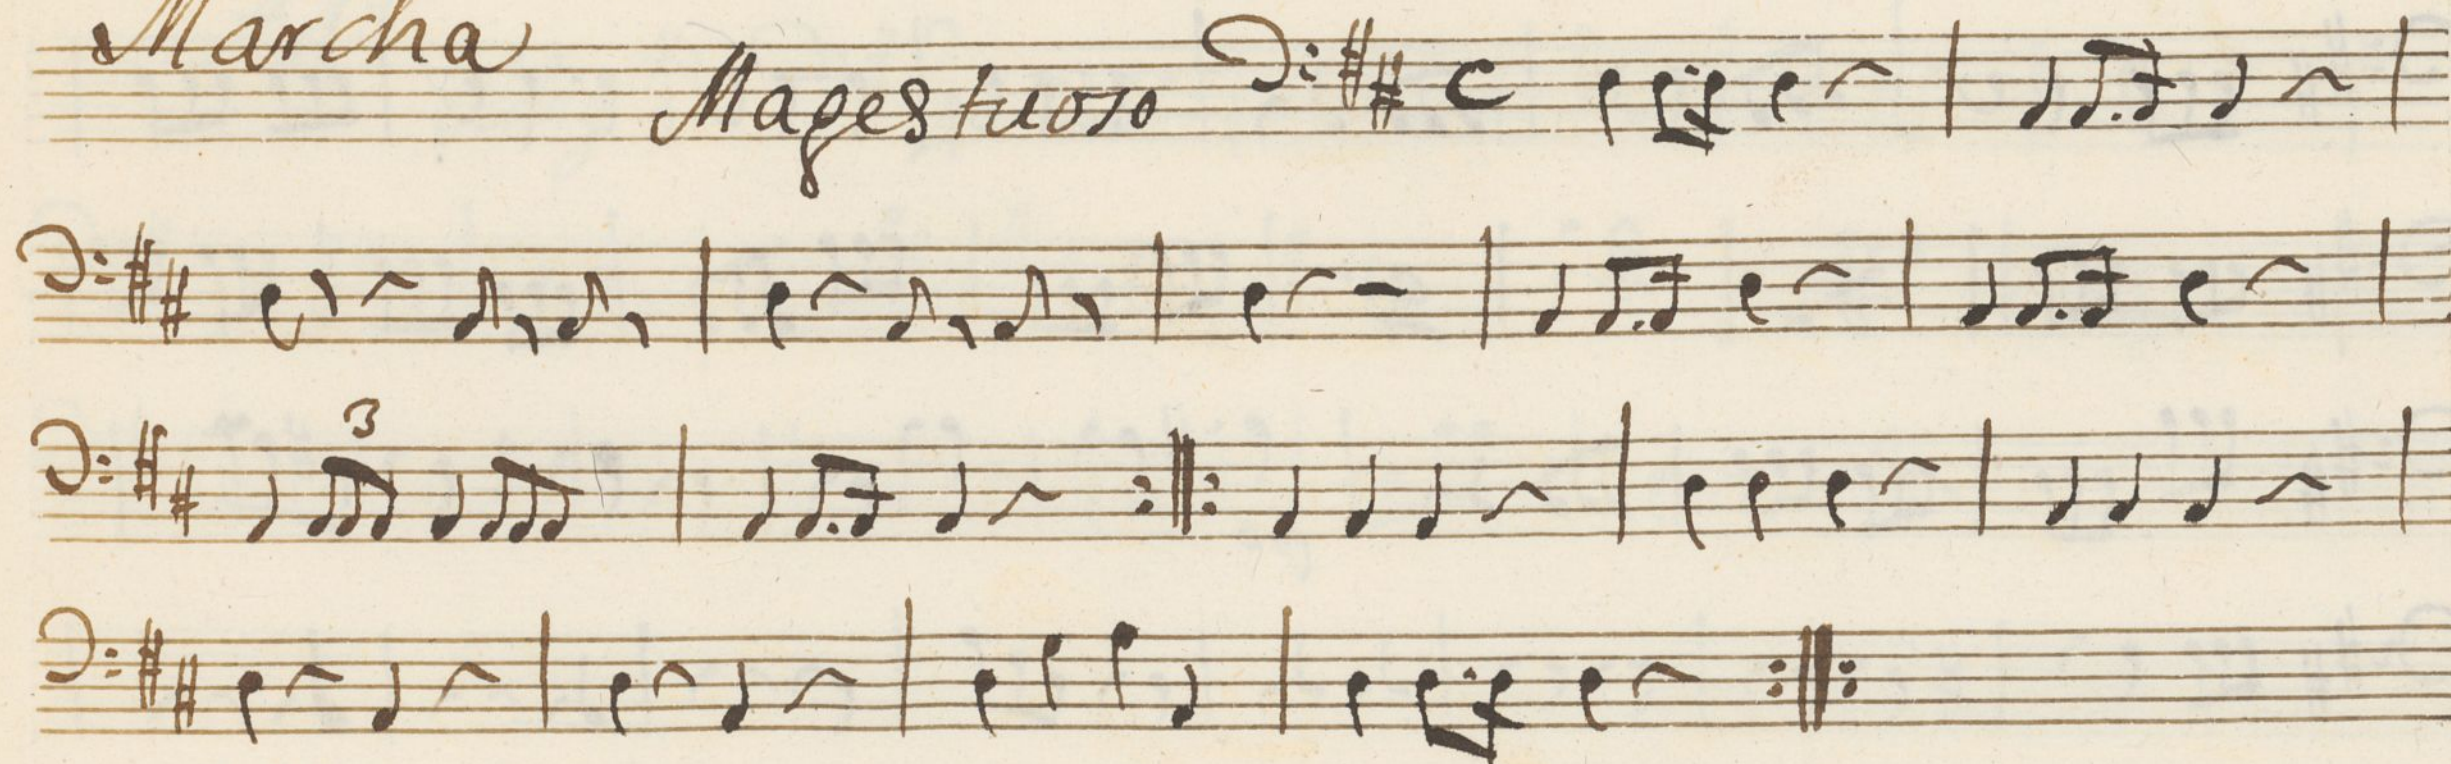 Marcha
Magestuoso
3